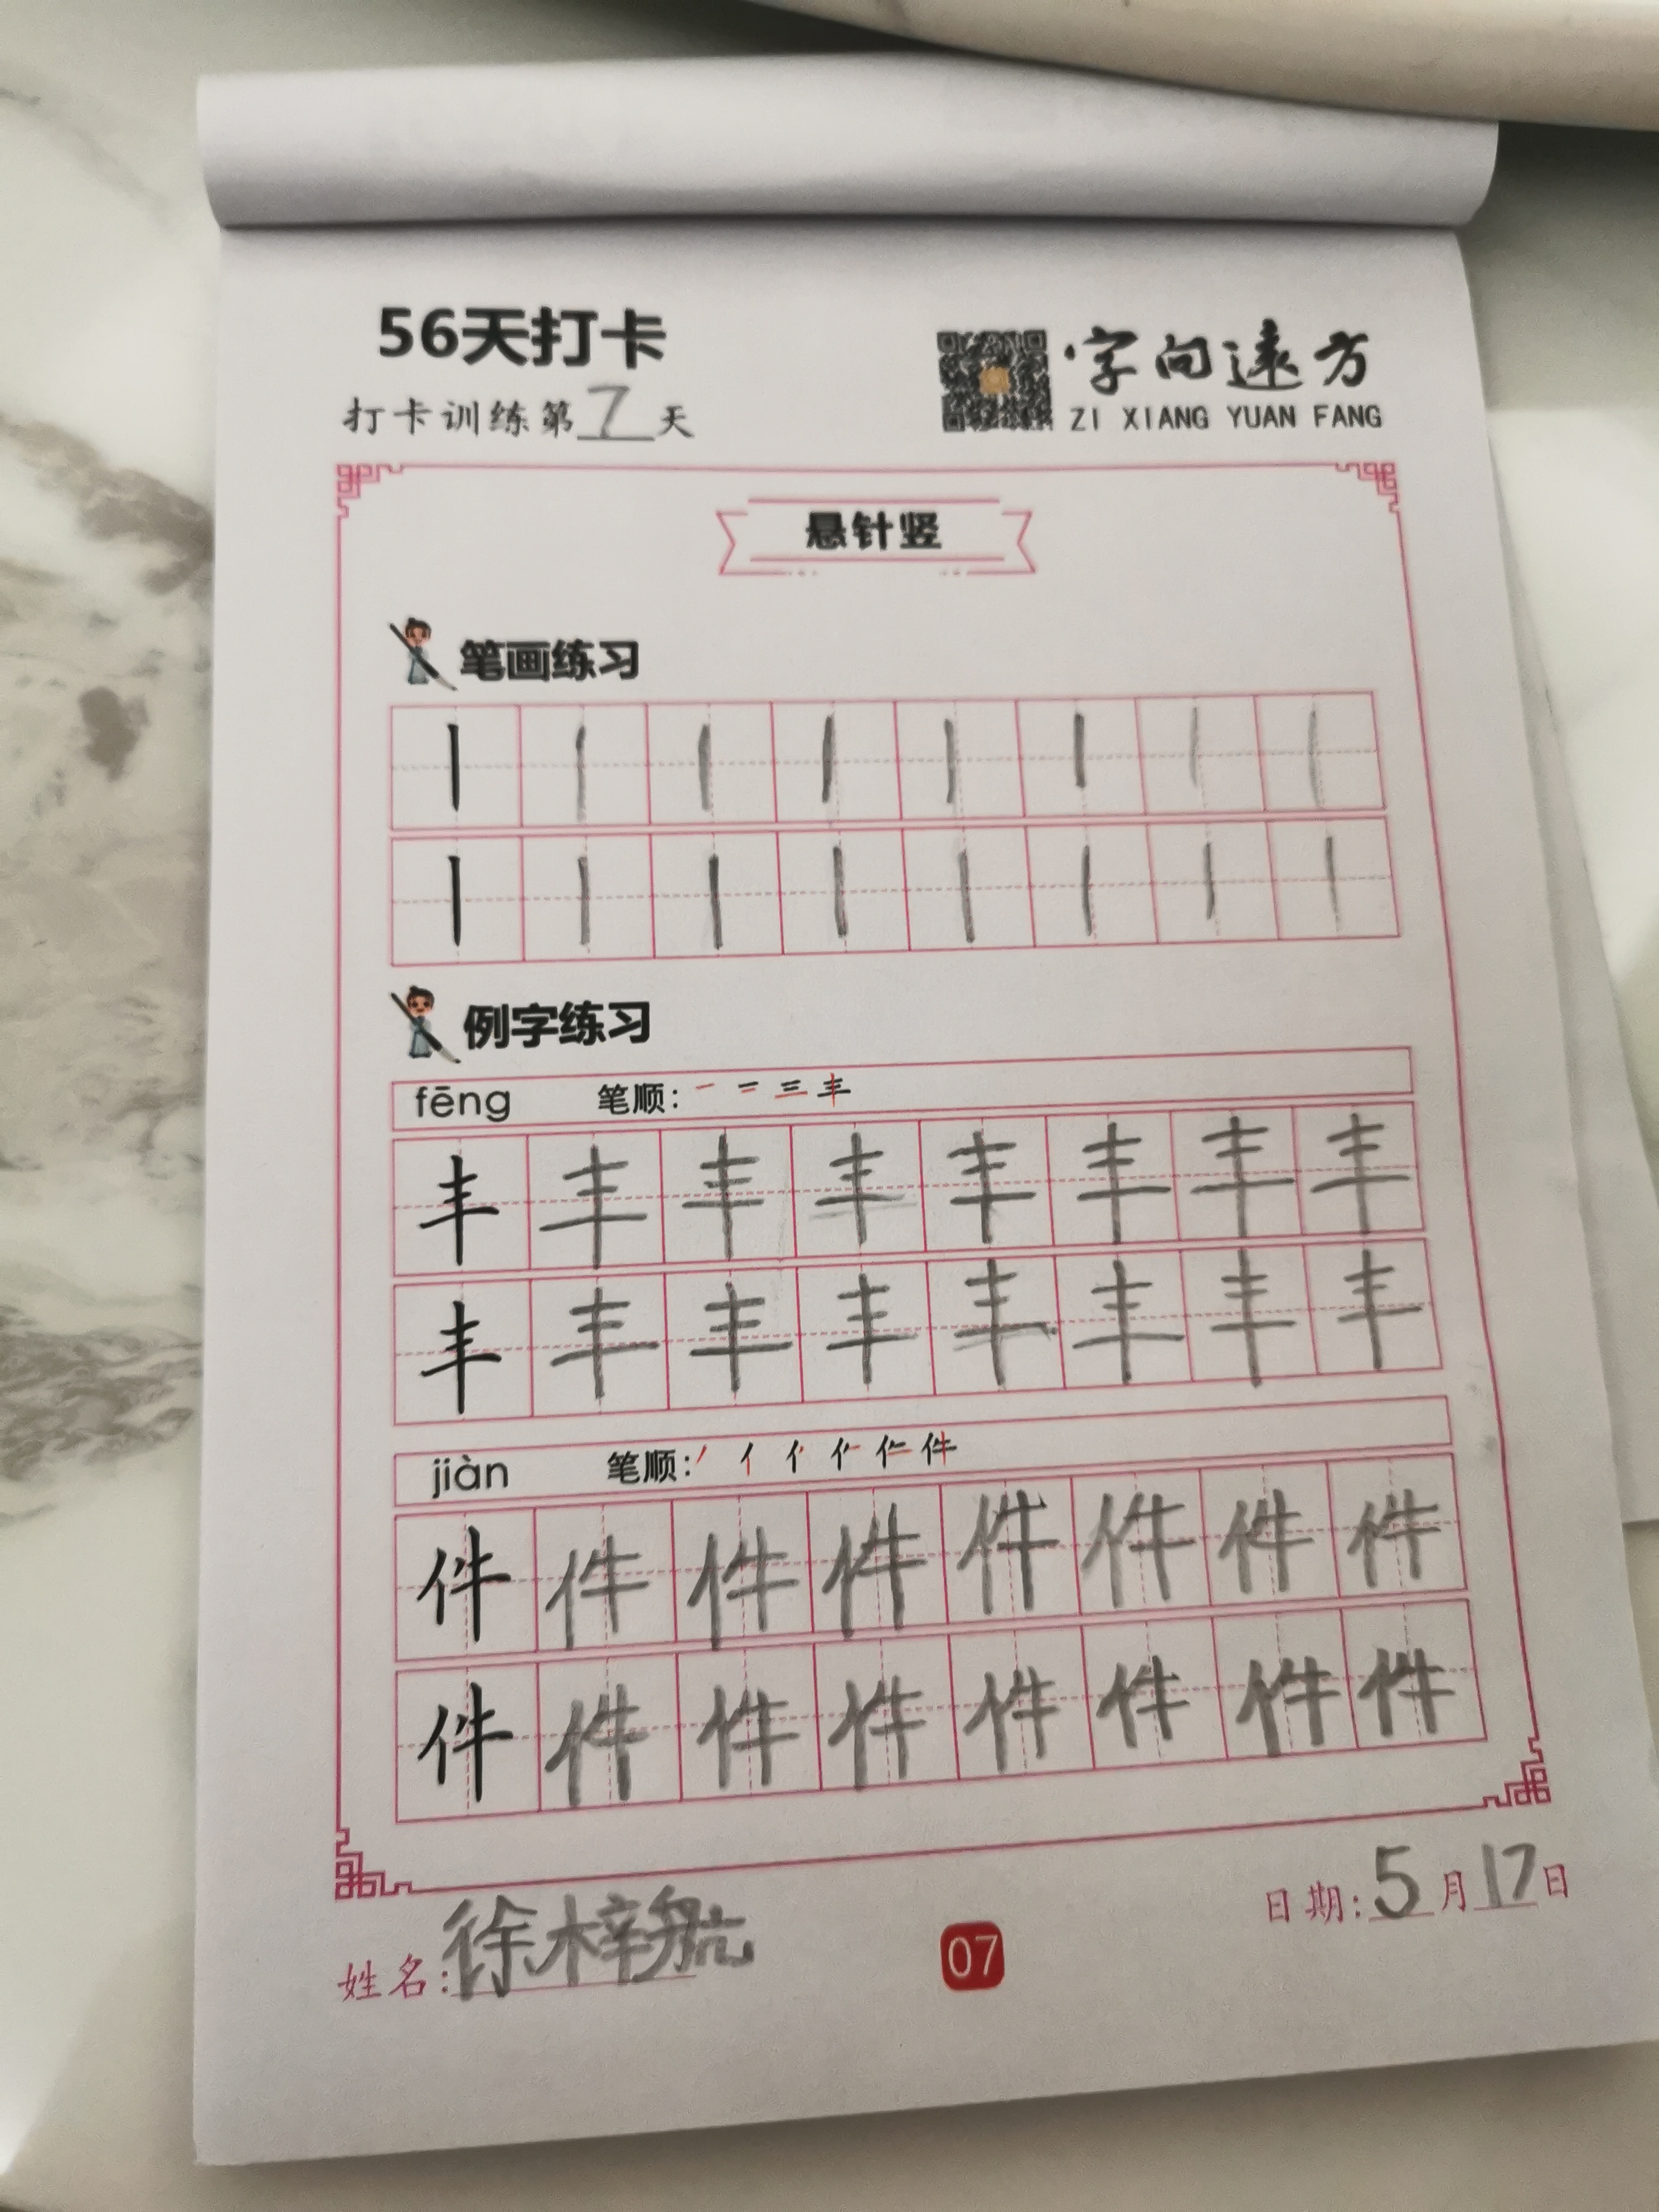 56天打卡
打卡训练第7天
字向远方
ZI XIANG YUAN FANG
悬针竖
笔画练习
丨 丨 丨 丨 丨 丨 丨 丨
丨 丨 丨 丨 丨 丨 丨 丨
例字练习
fēng 笔顺: 一 二 三 丰
丰 丰 丰 丰 丰 丰 丰 丰
丰 丰 丰 丰 丰 丰 丰 丰
jiàn 笔顺: 丿 亻 件
件 件 件 件 件 件 件 件
件 件 件 件 件 件 件 件
姓名: 徐梓航
07
日期: 5月17日